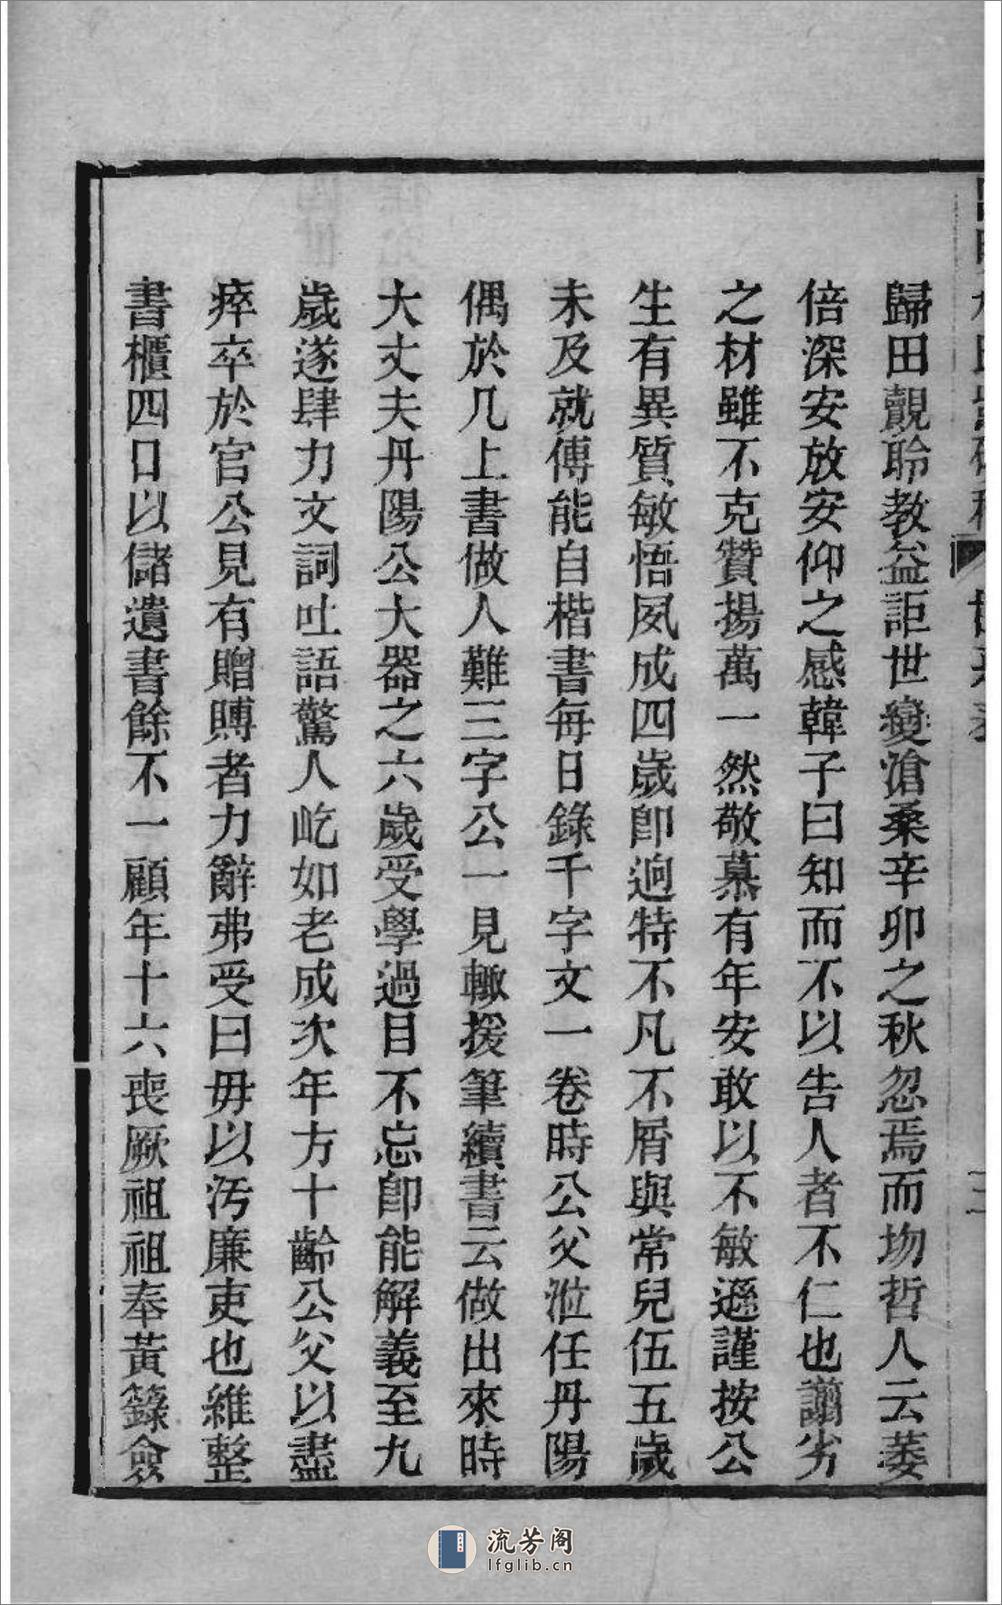 歸田覿聆教益詎世變滄桑辛卯之秋忽焉而坳哲人云萎
倍深安放安仰之感韓子曰知而不以告人者不仁也謭劣
之材雖不克贊揚萬一然敬慕有年安敢以不敏遜謹按公
生有異質敏悟夙成四歲卽逈特不凡不屑與常兒伍五歲
未及就傅能自楷書每日錄千字文一卷時公父涖任丹陽
偶於几上書做人難三字公一見輙援筆續書云做出來時
大丈夫丹陽公大器之六歲受學過目不忘卽能解義至九
歲遂肆力文詞吐語驚人屹如老成次年方十齡公父以盡
瘁卒於官公見有贈賻者力辭弗受曰毋以汚廉吏也維整
書櫃四口以儲遺書餘不一顧年十六喪厥祖祖奉黃籙僉
三
流芳阁
lfglib.cn